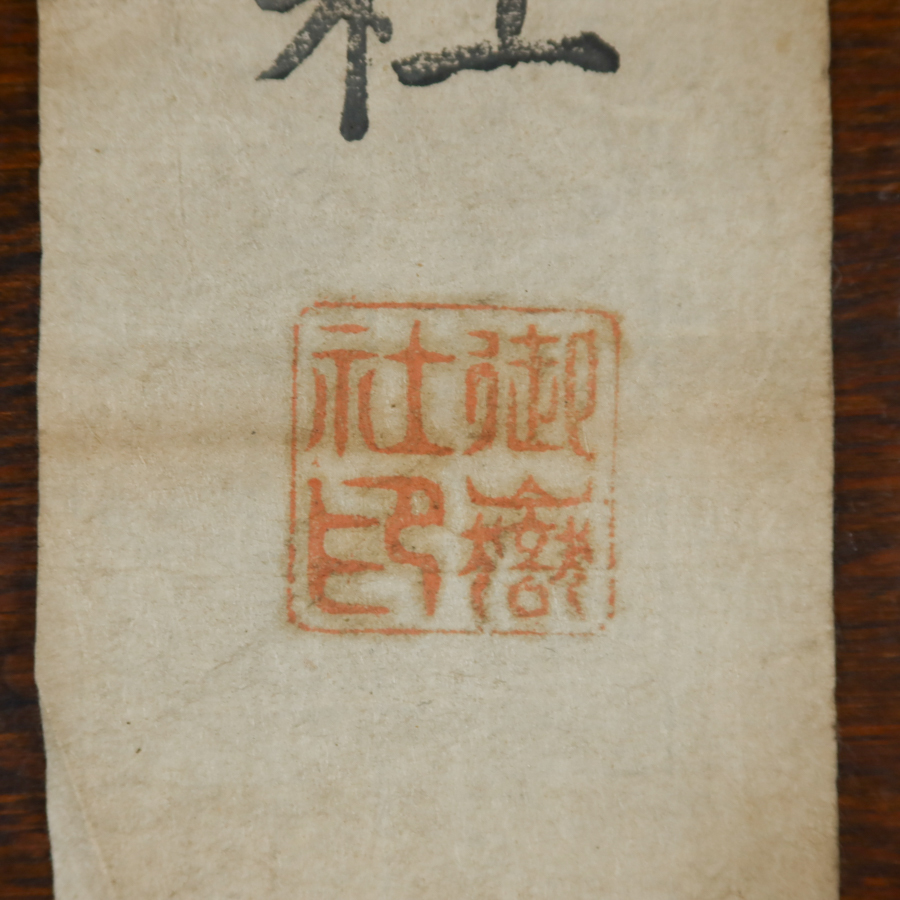 社
御嶽
社印